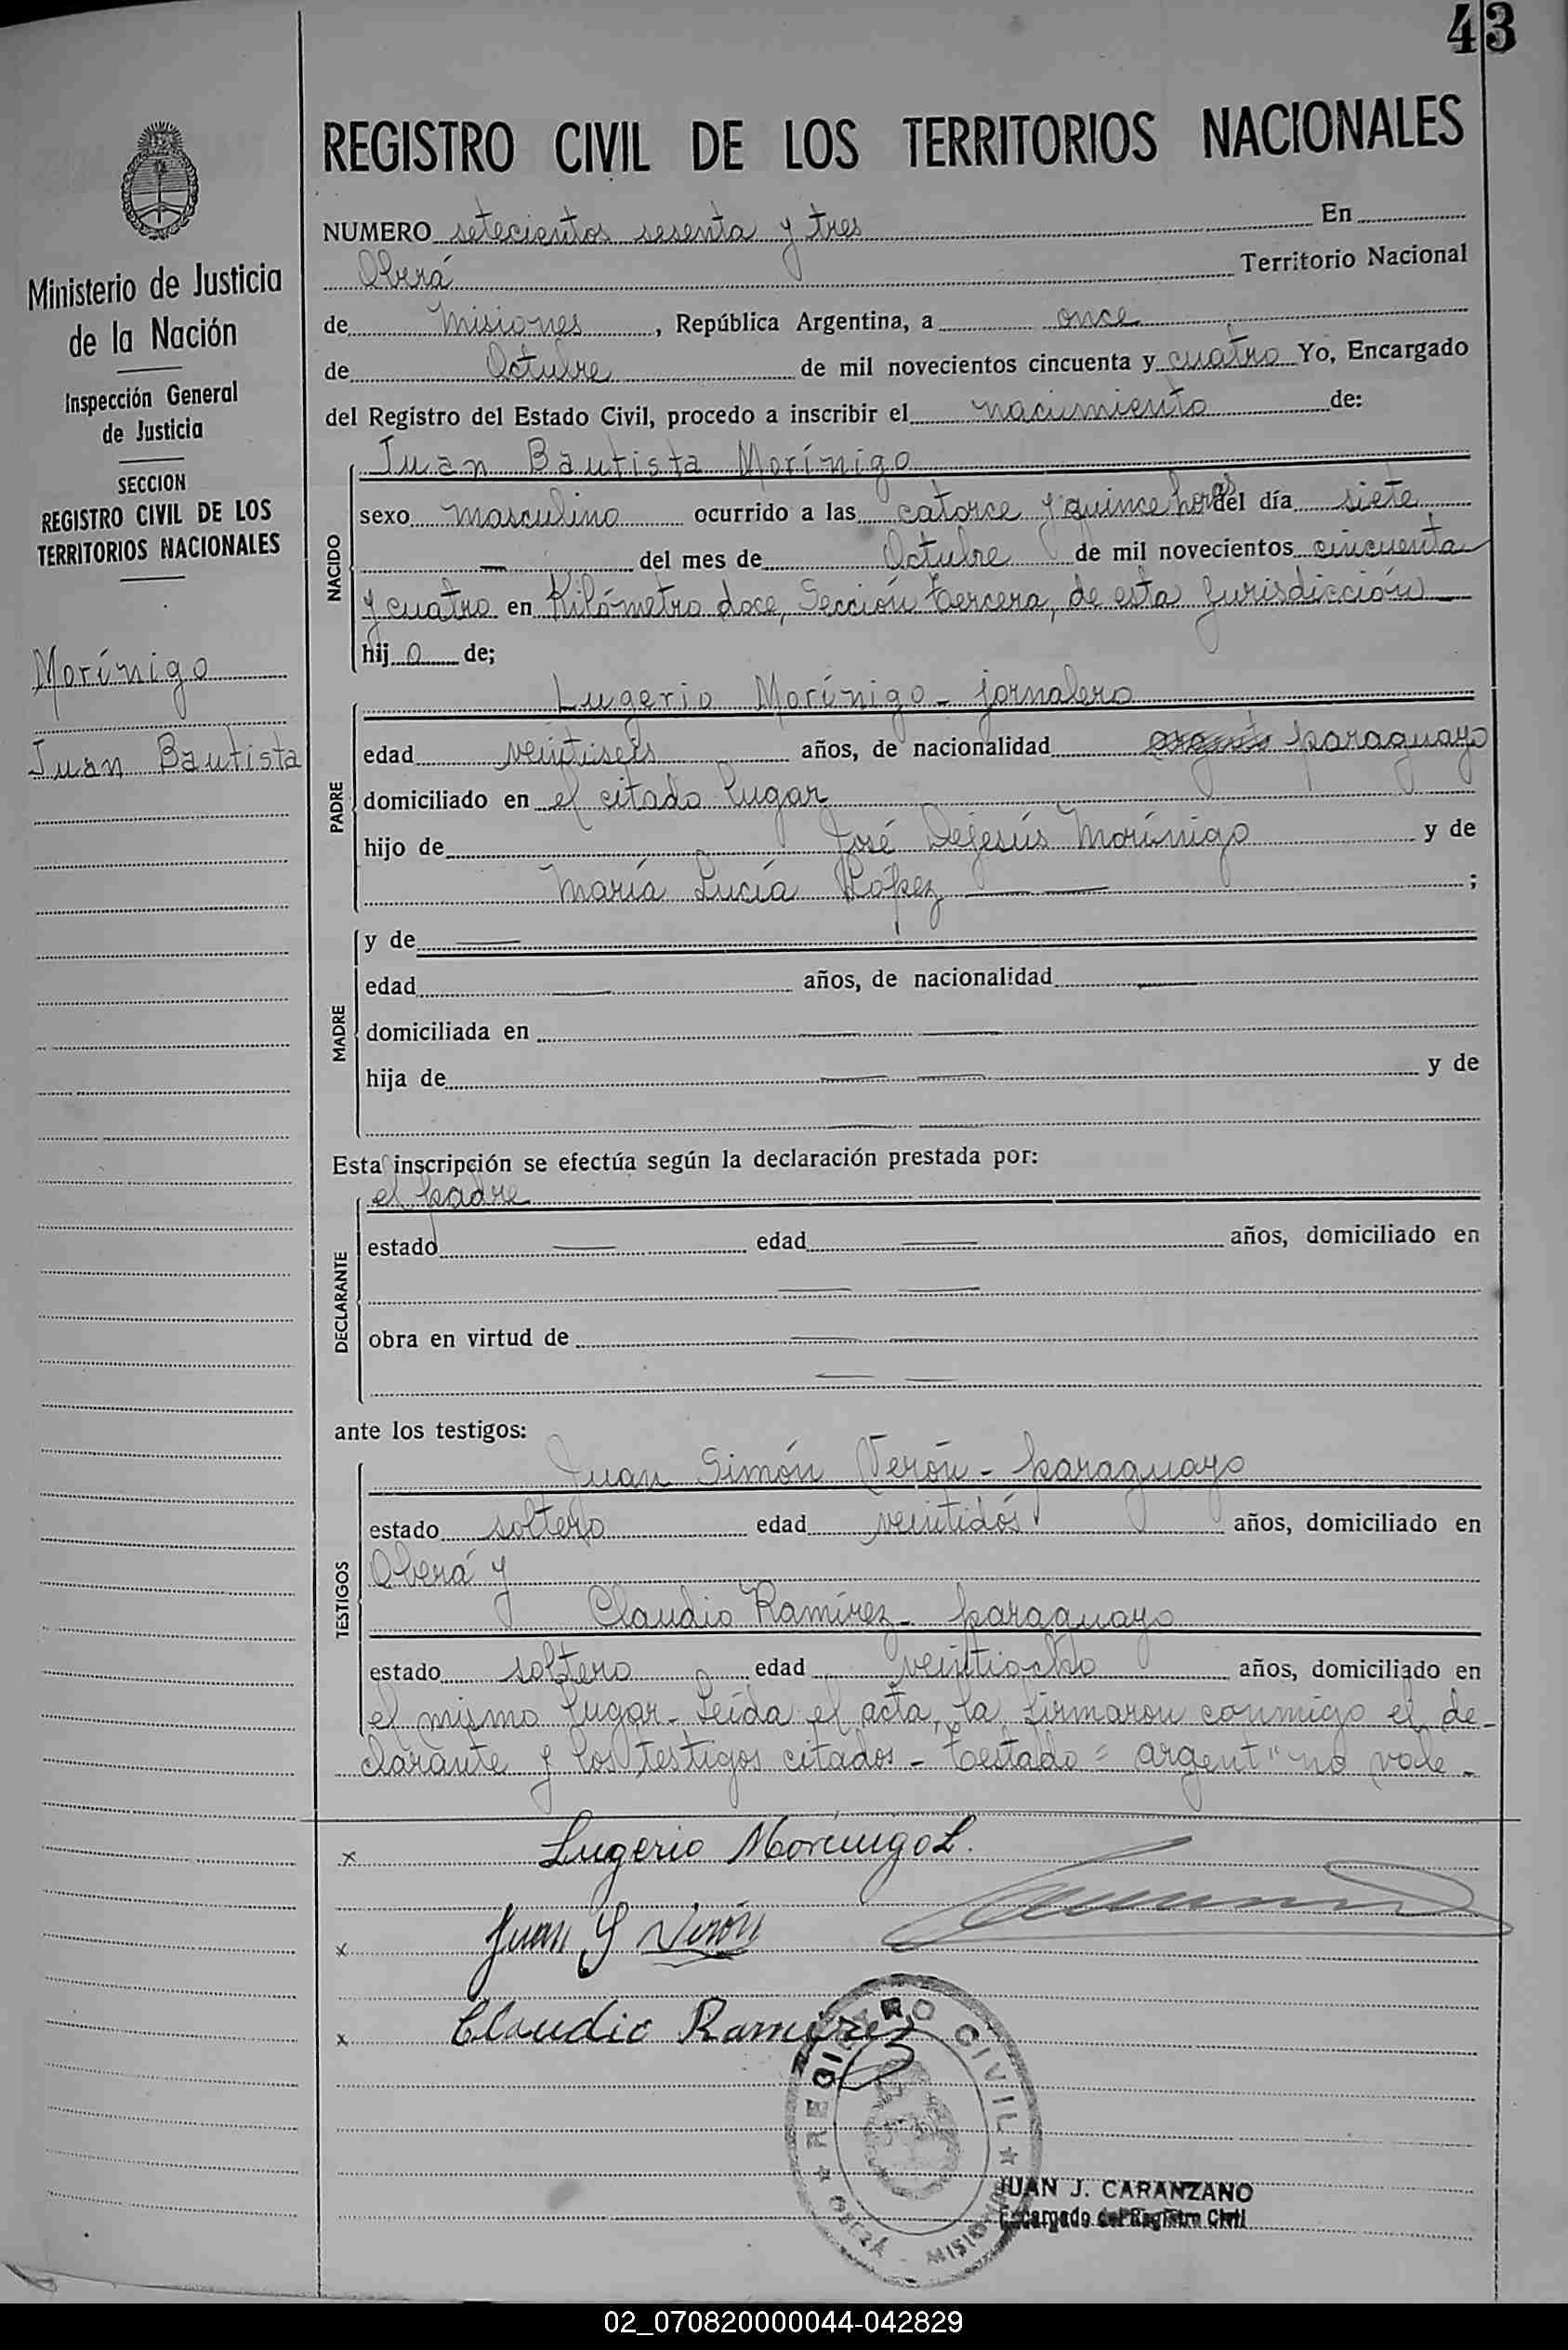 43
REGISTRO CIVIL DE LOS TERRITORIOS NACIONALES
Ministerio de Justicia
de la Nación
Inspección General
de Justicia
SECCION
REGISTRO CIVIL DE LOS
TERRITORIOS NACIONALES
Morínigo
Juan Bautista
NUMERO setecientos sesenta y tres En
Oberá Territorio Nacional
de Misiones, República Argentina, a once
de Octubre de mil novecientos cincuenta y cuatro Yo, Encargado
del Registro del Estado Civil, procedo a inscribir el nacimiento de:
NACIDO
Juan Bautista Morínigo
sexo masculino ocurrido a las catorce y quince horas del día siete
— del mes de Octubre de mil novecientos cincuenta
y cuatro en Kilómetro doce, Sección tercera, de esta Jurisdicción —
hijo de;
PADRE
Lugerio Morínigo - jornalero
edad veintiseis años, de nacionalidad argent paraguayo
domiciliado en el citado lugar
hijo de José Dejesús Morínigo y de
María Lucía López — — ;
MADRE
y de —
edad — años, de nacionalidad —
domiciliada en — —
hija de — — y de
— —
Esta inscripción se efectúa según la declaración prestada por:
DECLARANTE
el padre
estado — edad — años, domiciliado en
— —
obra en virtud de — —
— —
ante los testigos:
TESTIGOS
Juan Simón Verón - paraguayo
estado soltero edad veintidós años, domiciliado en
Oberá y
Claudio Ramírez - paraguayo
estado soltero edad veintiocho años, domiciliado en
el mismo lugar - Leída el acta, la firmaron conmigo el de-
clarante y los testigos citados - Testado = argent" no vale -
x Lugerio Morinigo L.
x Juan S Verón
x Claudio Ramírez
REGISTRO CIVIL
OBERÁ - MISIONES
JUAN J. CARANZANO
Encargado del Registro Civil
02_070820000044-042829